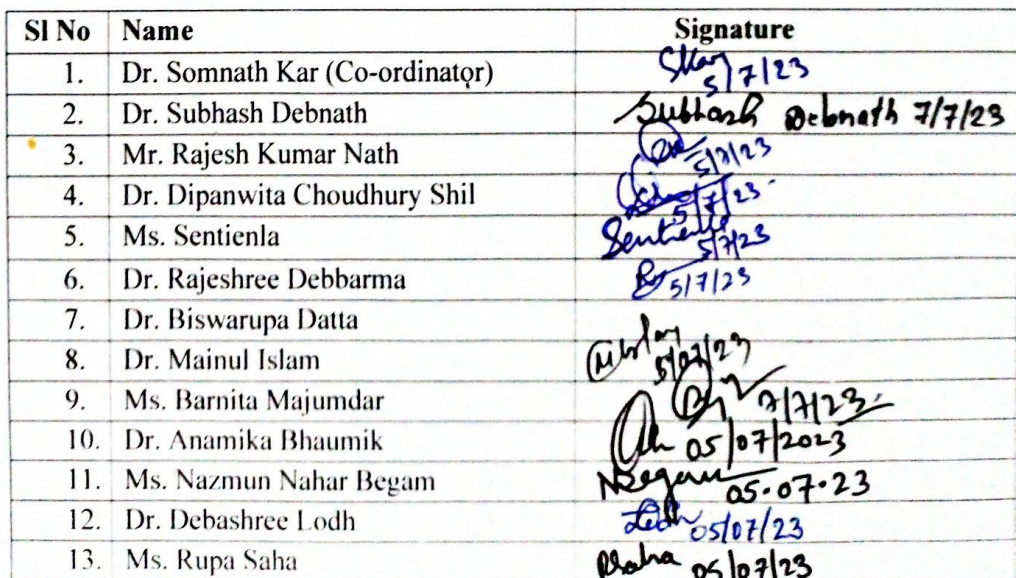 Sl No Name Signature
1. Dr. Somnath Kar (Co-ordinator) SKar 5/7/23
2. Dr. Subhash Debnath Subhash Debnath 7/7/23
3. Mr. Rajesh Kumar Nath 5/7/23
4. Dr. Dipanwita Choudhury Shil 5/7/23
5. Ms. Sentienla Sentienla 5/7/23
6. Dr. Rajeshree Debbarma 5/7/23
7. Dr. Biswarupa Datta
8. Dr. Mainul Islam 5/07/23
9. Ms. Barnita Majumdar 7/7/23
10. Dr. Anamika Bhaumik 05/07/2023
11. Ms. Nazmun Nahar Begam NBegam 05.07.23
12. Dr. Debashree Lodh Lodh 05/07/23
13. Ms. Rupa Saha RSaha 05/07/23